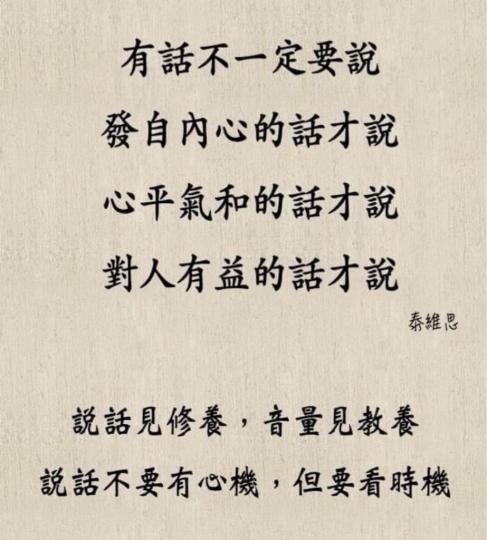 有話不一定要說
發自內心的話才說
心平氣和的話才說
對人有益的話才說
泰維思
說話見修養，音量見教養
說話不要有心機，但要看時機